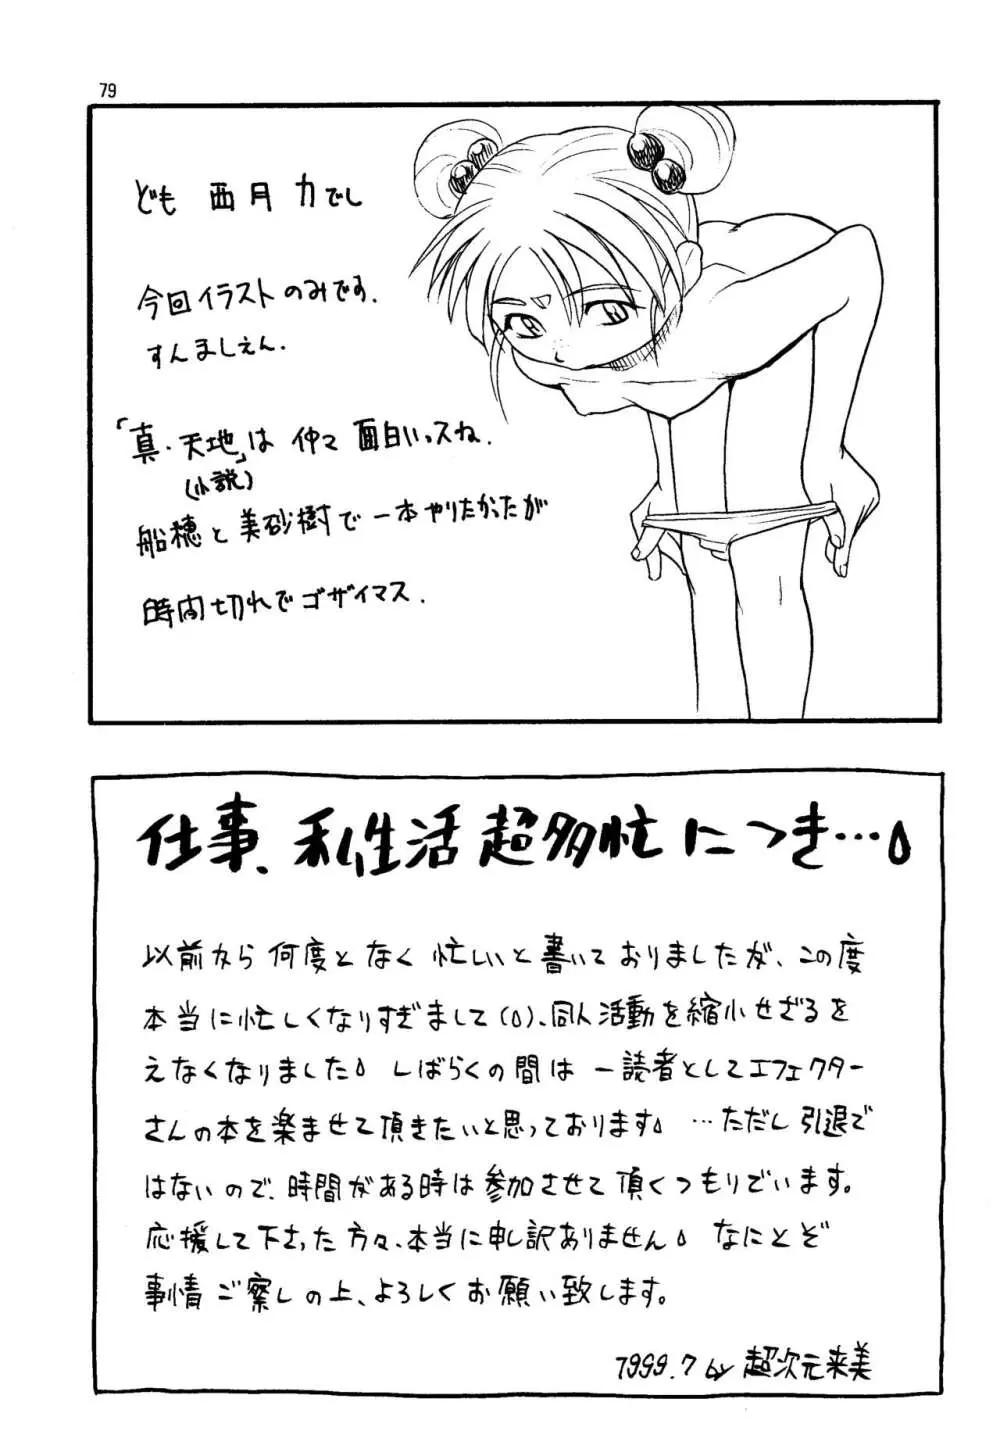 79
ども 西月 力でし
今回イラストのみです.
すんましぇん.
「真・天地」は 仲々 面白いっスね.
(小説)
船穂と美砂樹で一本やりたかったが
時間切れでゴザイマス.
仕事、私生活超多忙につき…。
以前から何度となく忙しいと書いておりましたが、この度
本当に忙しくなりすぎまして(。)、同人活動を縮小せざるを
えなくなりました。しばらくの間は一読者としてエフェクター
さんの本を楽ませて頂きたいと思っております。…ただし引退で
はないので、時間がある時は参加させて頂くつもりでいます。
応援して下さった方々、本当に申し訳ありません。なにとぞ
事情ご察しの上、よろしくお願い致します。
1999.7 by 超次元来美